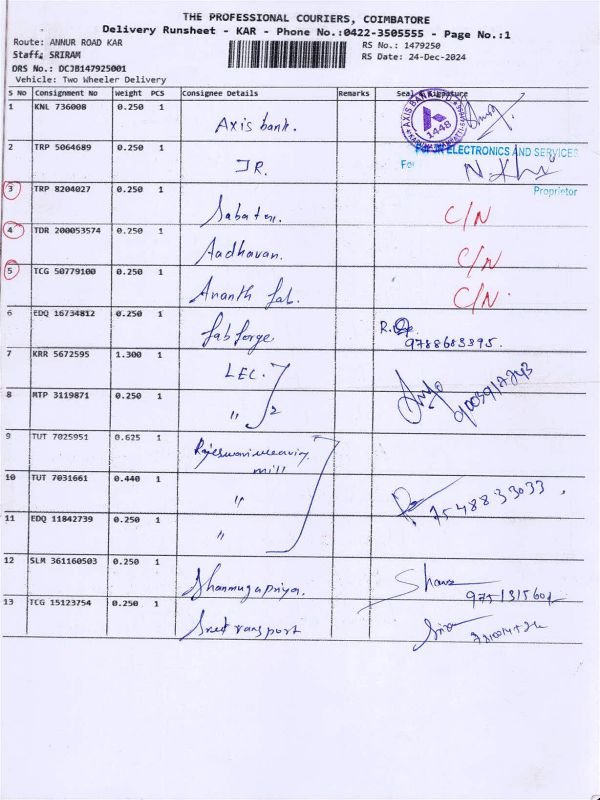 THE PROFESSIONAL COURIERS, COIMBATORE
Delivery Runsheet - KAR - Phone No.:0422-3505555 - Page No.:1
Route: ANNUR ROAD KAR
RS No.: 1479250
Staff: SRIRAM
RS Date: 24-Dec-2024
DRS No.: DCJB147925001
Vehicle: Two Wheeler Delivery
S No Consignment No Weight PCS Consignee Details Remarks Seal Signature
1 KNL 736008 0.250 1 Axis bank. AXIS BANK LTD 1448
2 TRP 5064689 0.250 1 JR. For JR ELECTRONICS AND SERVICES
For
Proprietor
3 TRP 8204027 0.250 1 Sabaton. C/N
4 TDR 200053574 0.250 1 Aadhavan. C/N
5 TCG 50779100 0.250 1 Ananth fab. C/N
6 EDQ 16734812 0.250 1 fab forge 9788683395.
7 KRR 5672595 1.300 1 LEC.
8 MTP 3119871 0.250 1 " 2
9 TUT 7025951 0.625 1 Rajeswari weaving
mill
10 TUT 7031661 0.440 1 " 7548833033.
11 EDQ 11842739 0.250 1 "
12 SLM 361160503 0.250 1 Shanmugapriya.
13 TCG 15123754 0.250 1 Sree transport